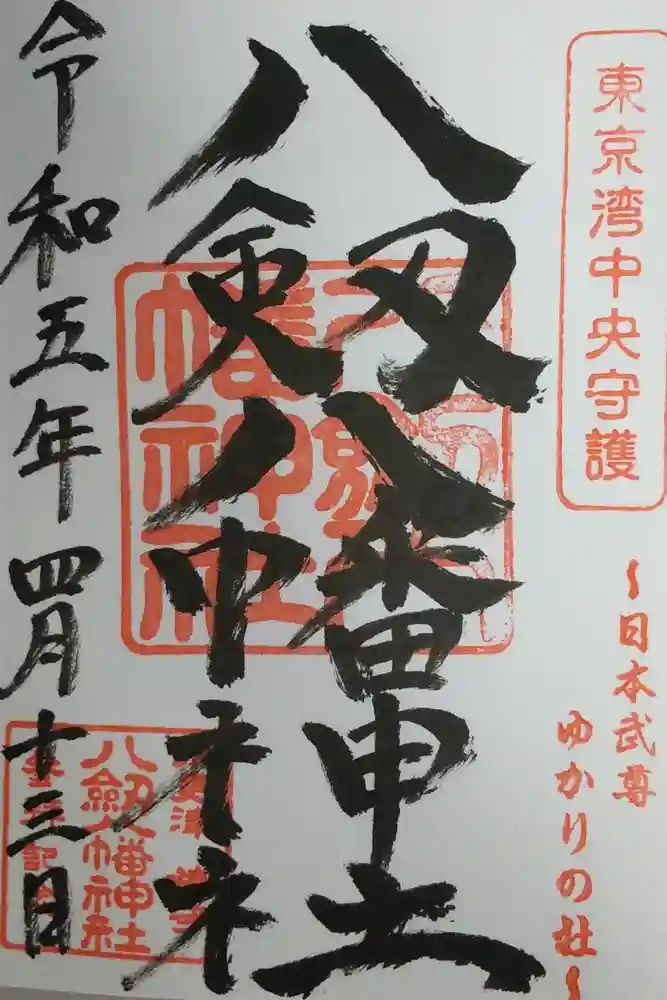 東京湾中央守護
~日本武尊
ゆかりの社~
八剱八幡神社
八幡神社
八剱八幡神社
令和五年四月十三日